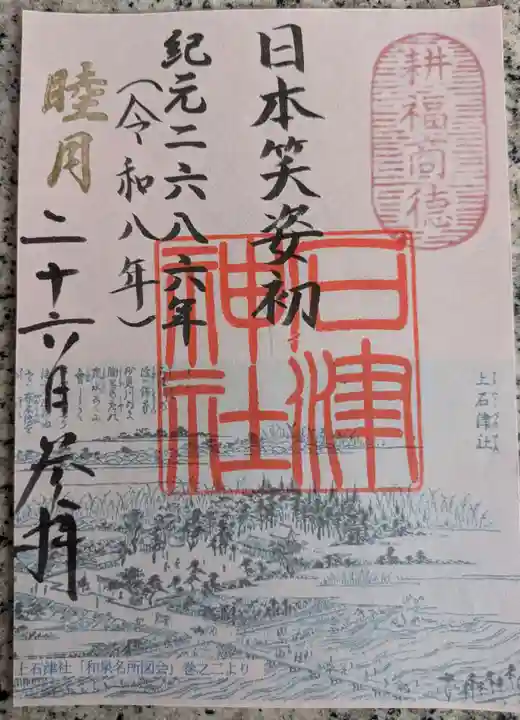 耕福商徳
日本笑姿初
紀元二六八六年
（令和八年）
睦月二十六日参拝
石津
神社
上石津社
上石津社「和泉名所図会」巻之二より